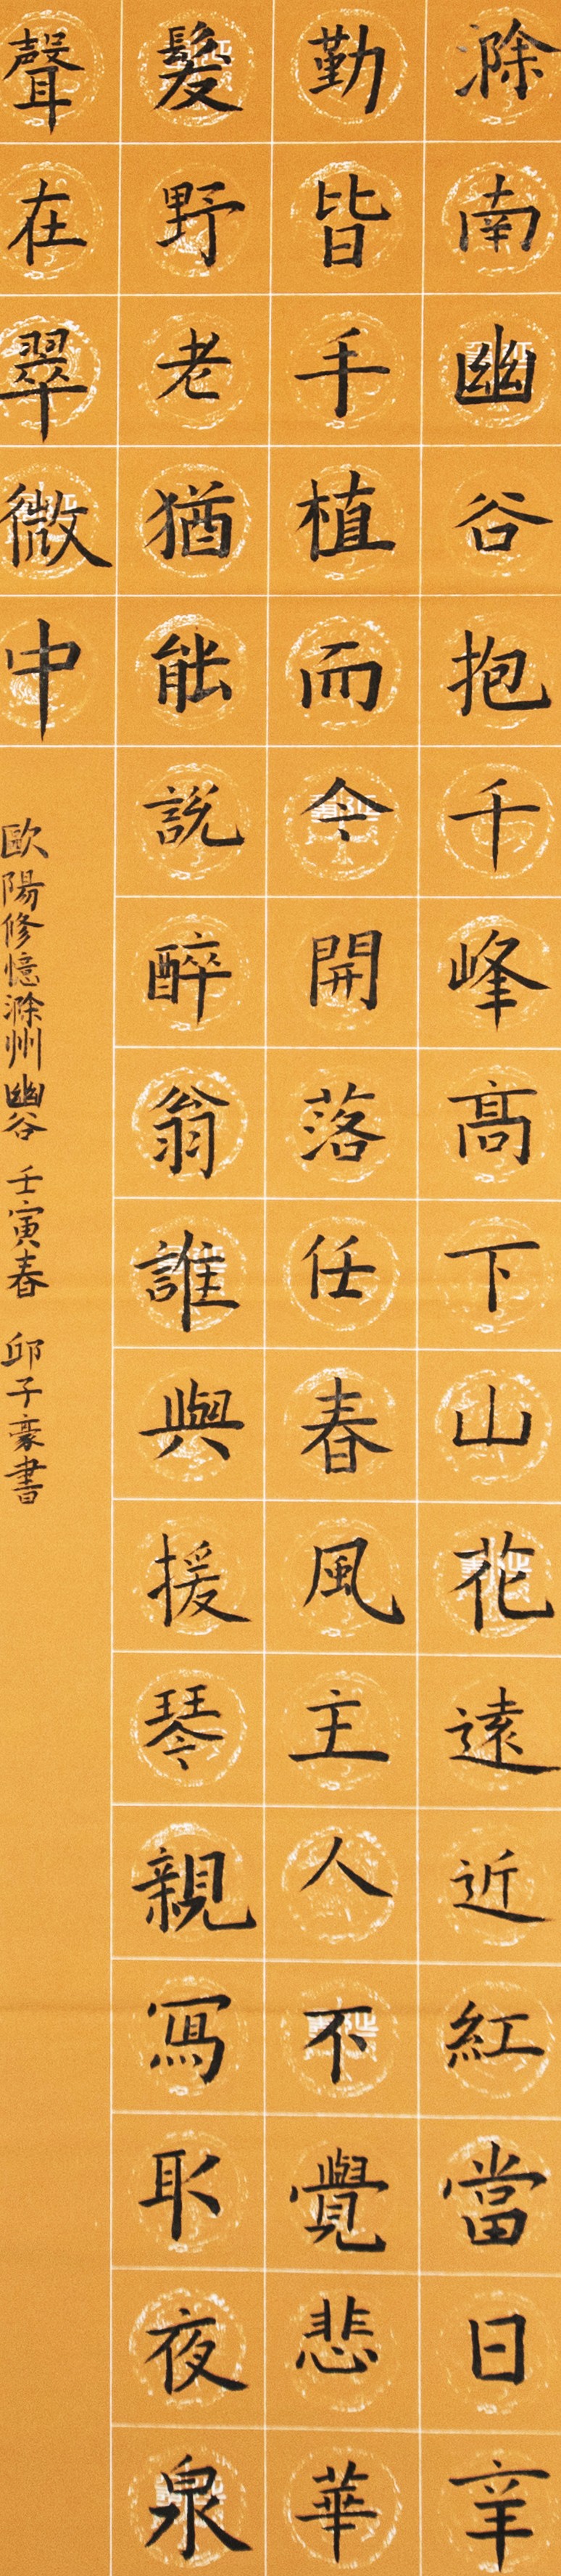 滁南幽谷抱千峰高下山花遠近紅當日辛
勤皆手植而今開落任春風主人不覺悲華
髮野老猶能說醉翁誰與援琴親寫取夜泉
聲在翠微中
歐陽修憶滁州幽谷 壬寅春 邱子豪書